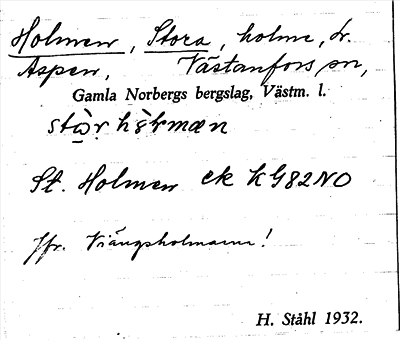 Holmen, Stora, holme, sr.
Aspen, Västanfors sn,
Gamla Norbergs bergslag, Västm. l.
St. Holmen ek KG82NO
Jfr. Viängsholmarna!
H. Ståhl 1932.